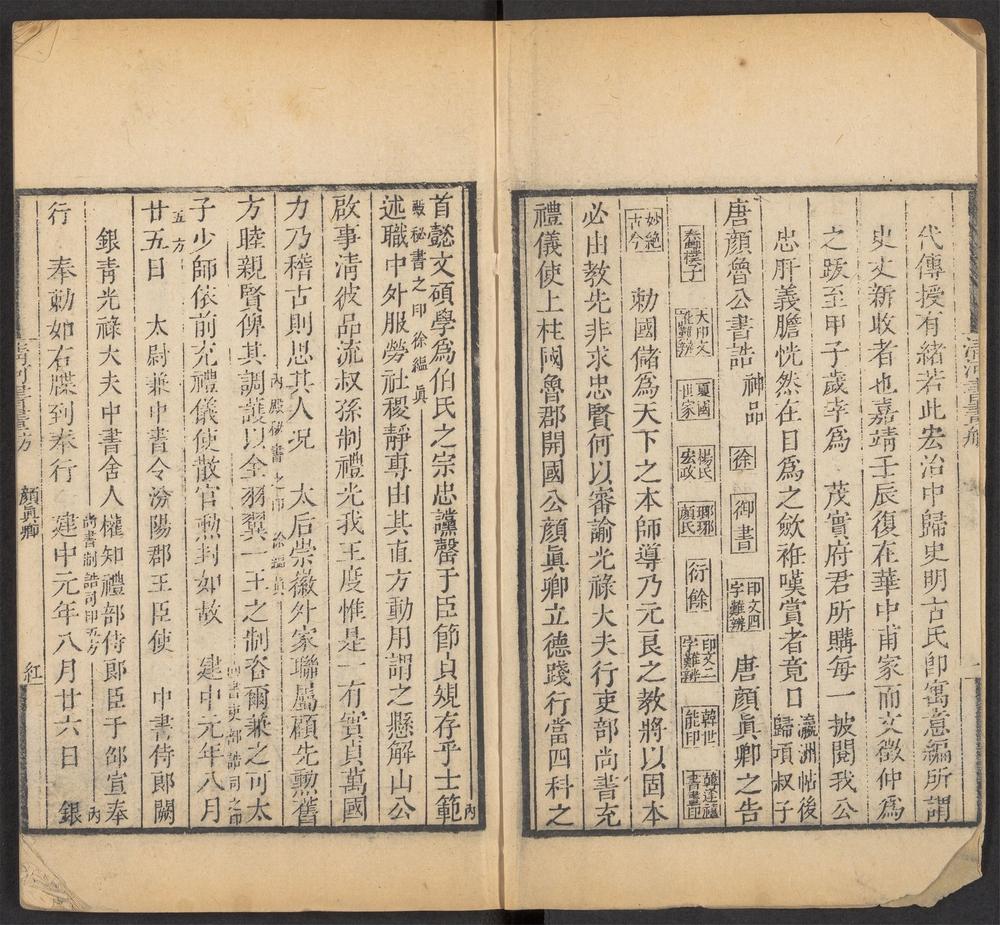 代傳授有緒若此宏治中歸史明古氏卽寓意編所謂
史文新收者也嘉靖壬辰復在華中甫家而文徵仲爲
之跋至甲子歲幸爲 茂實府君所購每一披閱我公
忠肝義膽恍然在目爲之歛袵嘆賞者竟日 瀛洲帖後歸項叔子
唐顏魯公書誥 神品 徐 御書 印文四字難辨 唐顏眞卿之告
大印文 難辨 夏國世家 楊氏宏政 瑯琊顏氏 衍餘 印文二字難辨 韓世能印 韓逢禧書畫印
妙絶古今 勅國儲爲天下之本師導乃元良之教將以固本
必由教先非求忠賢何以審諭光祿大夫行吏部尚書充
禮儀使上柱國魯郡開國公顏眞卿立德踐行當四科之
清河書畫舫
首懿文碩學爲伯氏之宗忠讜罄于臣節貞規存乎士範 內
殿秘書之印 徐緼眞
述職中外服勞社稷靜專由其直方動用謂之懸解山公
啟事淸彼品流叔孫制禮光我王度惟是一有實貞萬國
力乃稽古則思其人况 太后崇徽外家聯屬顧先勲舊
內殿秘書之印 徐緼眞
方睦親賢俾其調護以全羽翼一王之制咨爾兼之可太
子少師依前充禮儀使散官勲封如故 建中元年八月
尚書吏部誥司之印
五方
廿五日 太尉兼中書令汾陽郡王臣使 中書侍郎闕
銀靑光祿大夫中書舍人權知禮部侍郎臣于邵宣奉 內
尚書制誥司印五方
行 奉勅如右牒到奉行 建中元年八月廿六日 銀
顏眞卿
紅